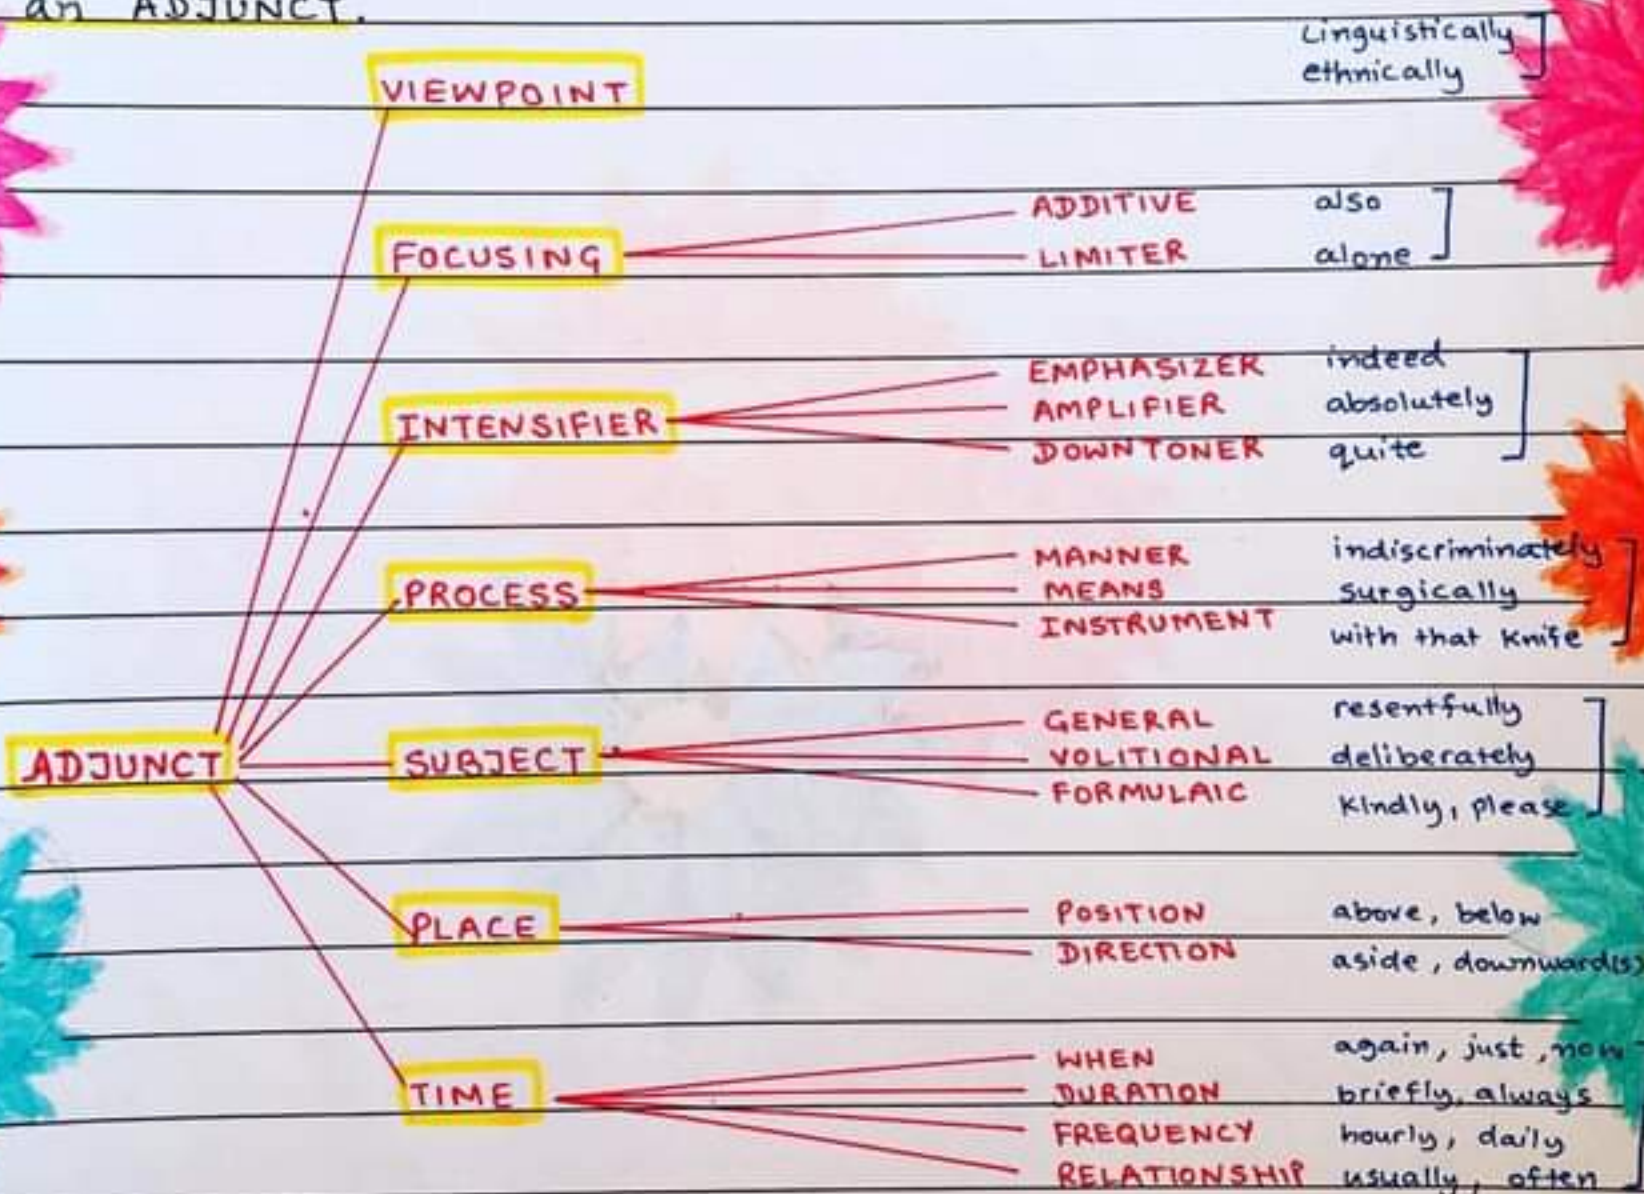 an ADJUNCT.
VIEWPOINT
Linguistically
ethnically
FOCUSING
ADDITIVE also
LIMITER alone
INTENSIFIER
EMPHASIZER indeed
AMPLIFIER absolutely
DOWNTONER quite
PROCESS
MANNER indiscriminately
MEANS surgically
INSTRUMENT with that knife
ADJUNCT
SUBJECT
GENERAL resentfully
VOLITIONAL deliberately
FORMULAIC kindly, please
PLACE
POSITION above, below
DIRECTION aside, downward(s)
TIME
WHEN again, just, now
DURATION briefly, always
FREQUENCY hourly, daily
RELATIONSHIP usually, often